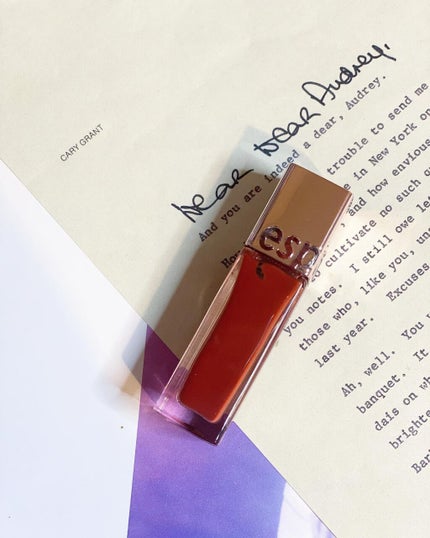 CARY GRANT
Dear Dear Audrey,
And you are indeed a dear, Audrey.
trouble to send me
e in New York on
, and how envious
cultivate no such
you notes. I still owe le
those who, like you, un
last year. Excuses
Ah, well. You
banquet. It
dais on wh
brighte
esp